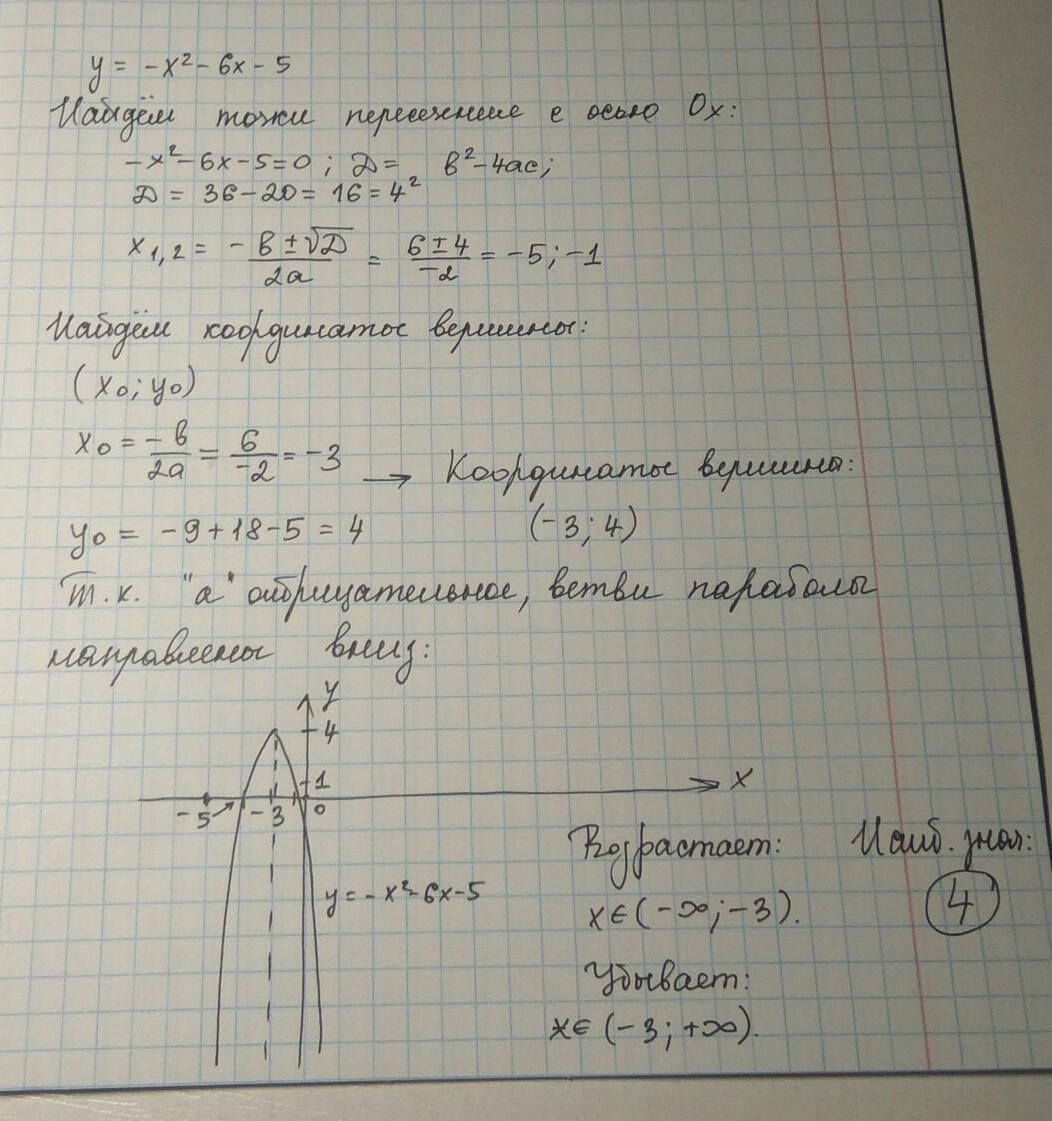 y = -x² - 6x - 5
Найдём точки пересечение с осью Ox:
-x² - 6x - 5 = 0 ; D = b² - 4ac;
D = 36 - 20 = 16 = 4²
x₁,₂ = -b ± √D / 2a = 6 ± 4 / -2 = -5; -1
Найдём координаты вершины:
(x₀; y₀)
x₀ = -b / 2a = 6 / -2 = -3 → Координаты вершины:
y₀ = -9 + 18 - 5 = 4 (-3; 4)
Т.к. "a" отрицательное, ветви параболы
направлены вниз:
y
4
1
x
-5 -3 0
Возрастает: Наиб. знач:
y = -x² - 6x - 5
x ∈ (-∞; -3). 4
Убывает:
x ∈ (-3; +∞).